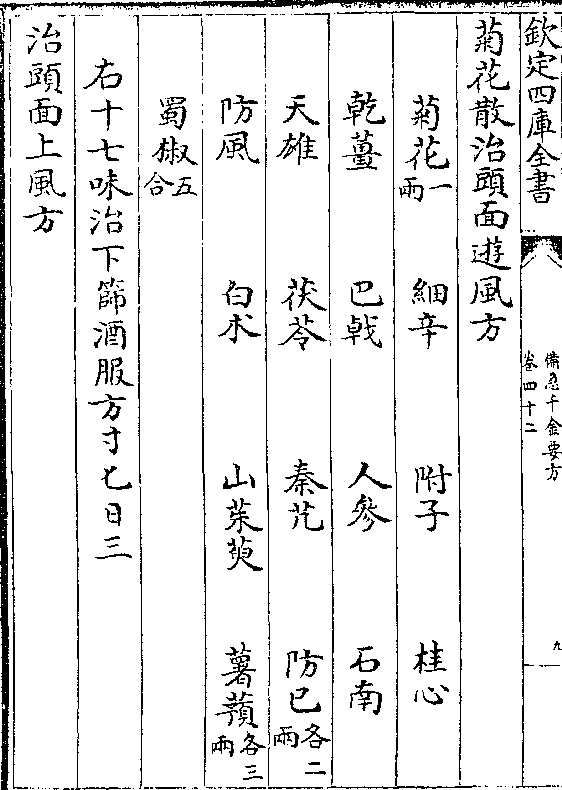 欽定四庫全書
備急千金要方
卷四十二
九
菊花散治頭面遊風方
菊花一兩 細辛 附子 桂心
乾薑 巴戟 人參 石南
天雄 茯苓 秦艽 防已各二兩
防風 白术 山茱萸 薯蕷各三兩
蜀椒五合
右十七味治下篩酒服方寸匕日三
治頭面上風方